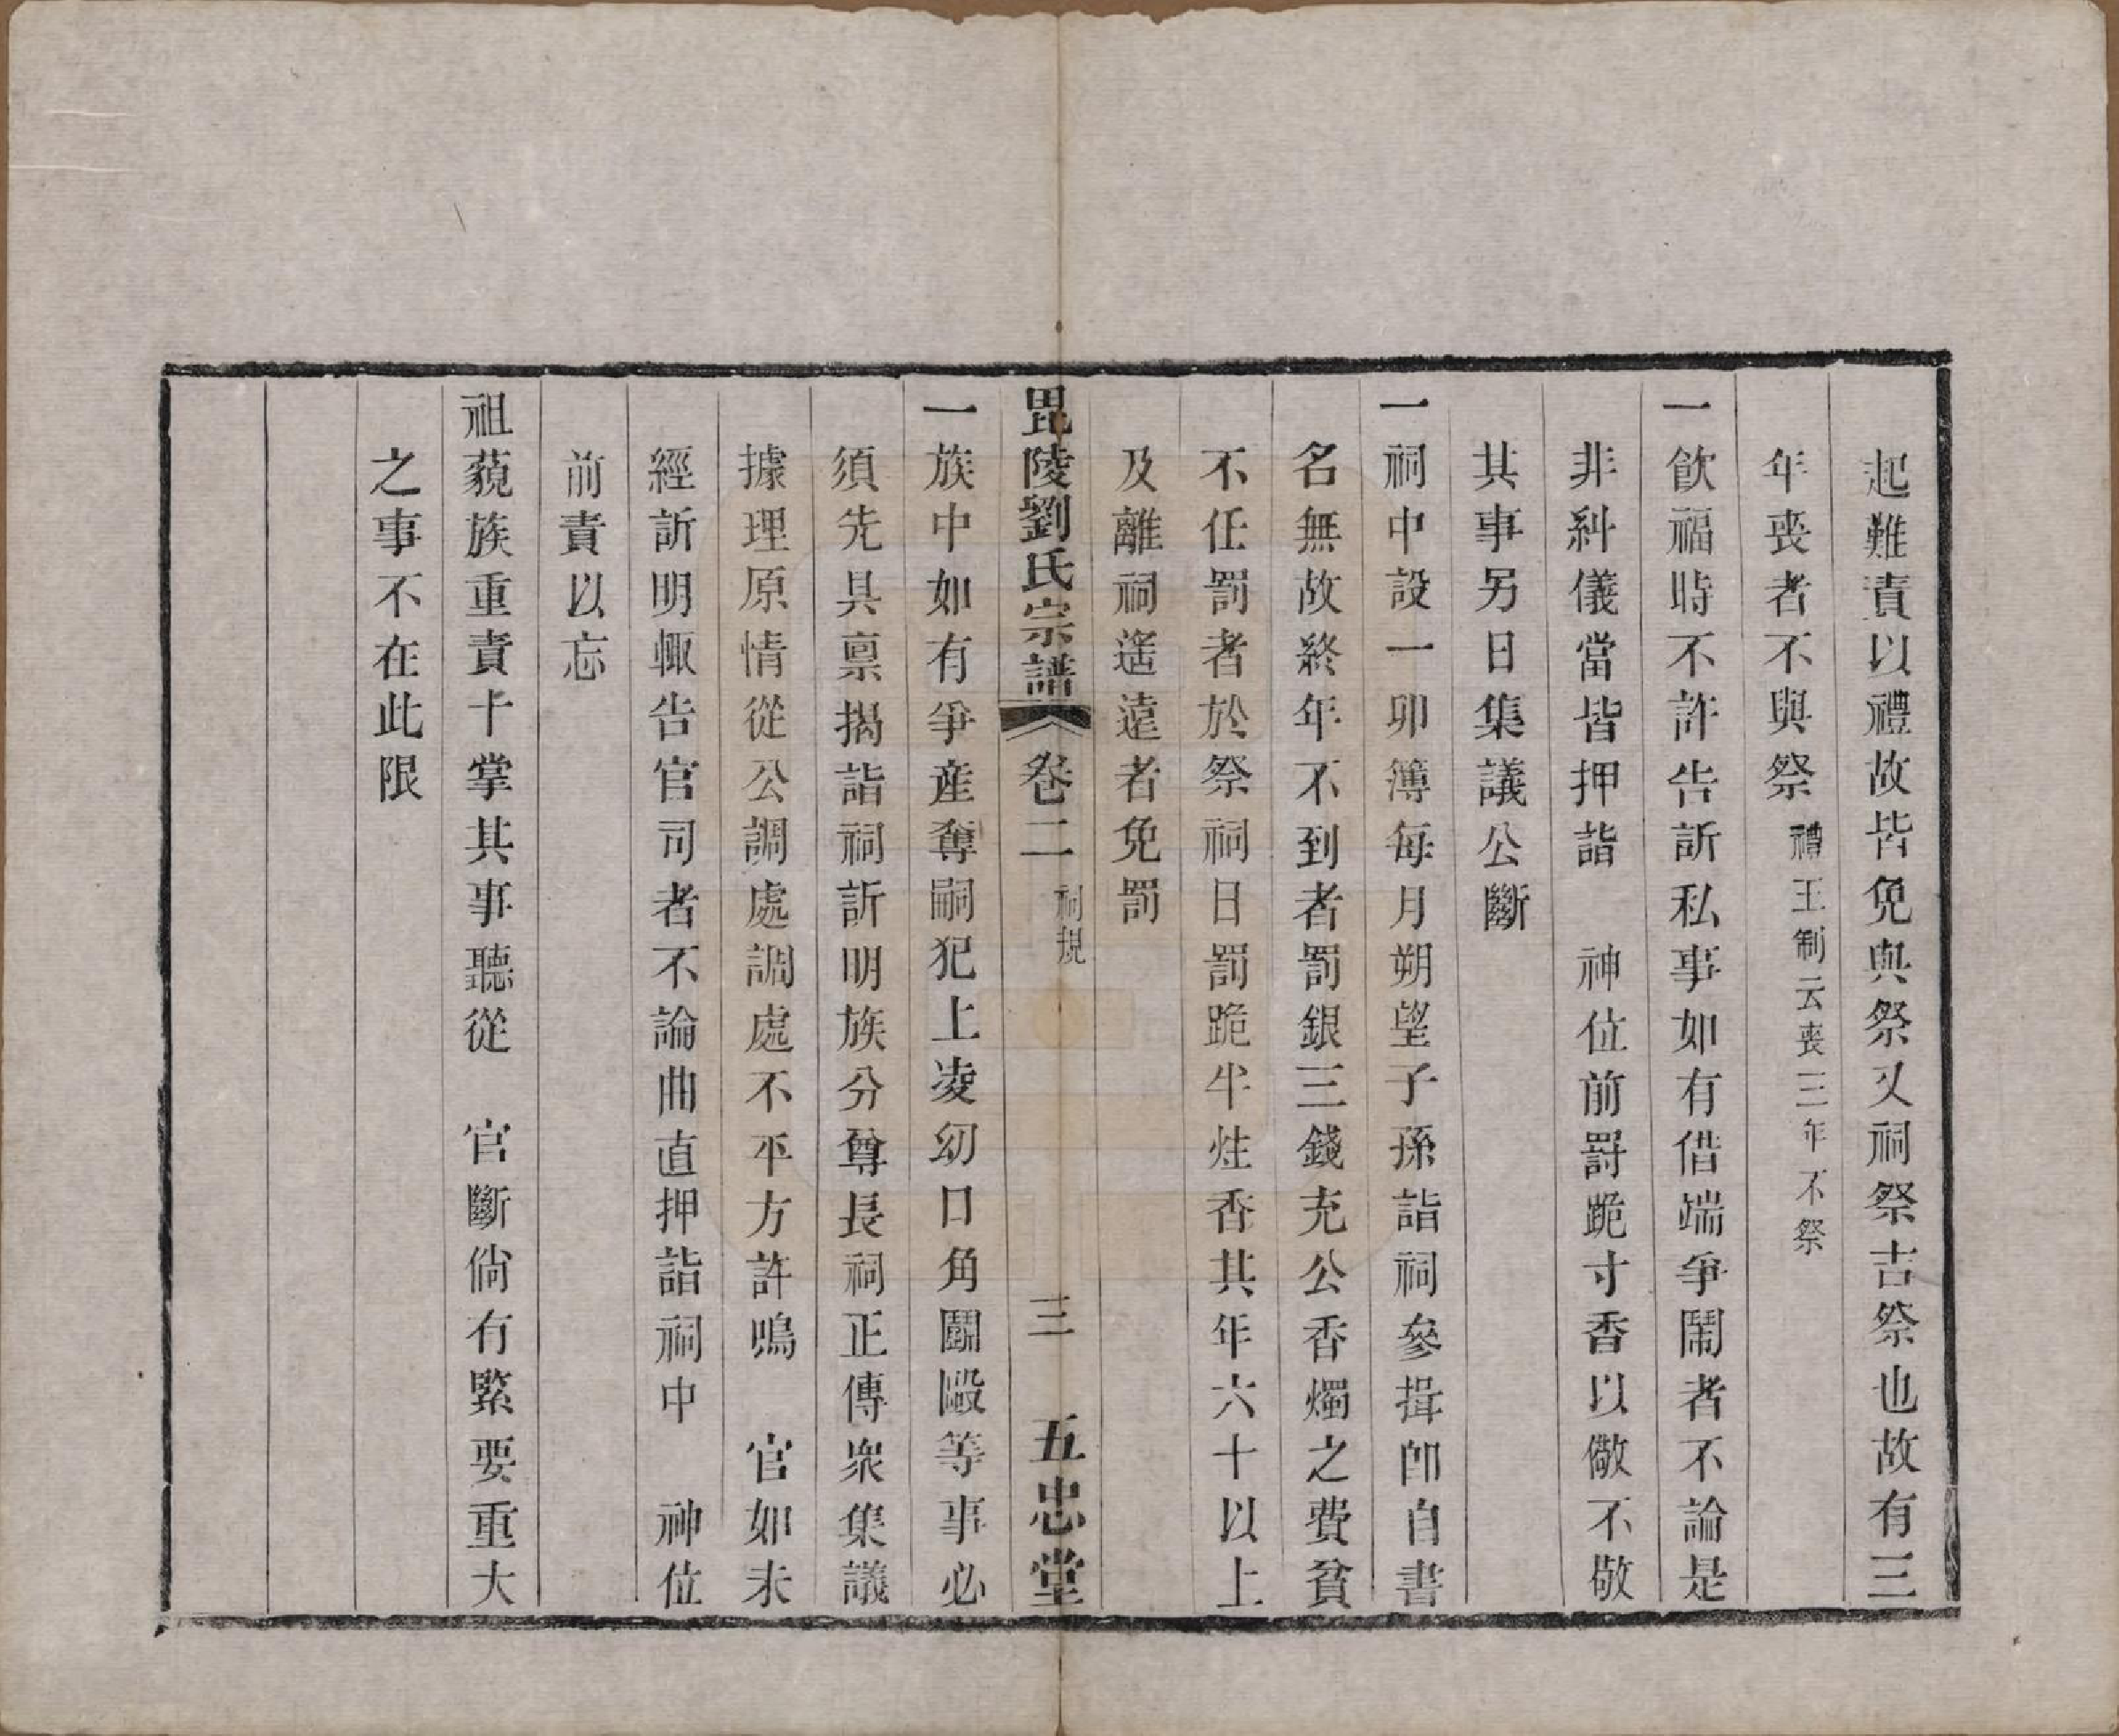 起難責以禮故皆免與祭又祠祭吉祭也故有三
年喪者不與祭禮王制云喪三年不祭
一飮福時不許告訴私事如有借端爭鬧者不論是
非糾儀當皆押詣　神位前罸跪寸香以儆不敬
其事另日集議公斷
一祠中設一卯簿每月朔望子孫詣祠參揖卽自書
名無故終年不到者罰銀三錢充公香燭之費貧
不任罰者於祭祠日罰跪半炷香其年六十以上
及離祠遙遠者免罰
毘陵劉氏宗譜　卷二　祠規　三　五忠堂
一族中如有爭產奪嗣犯上凌幼口角鬭毆等事必
須先具禀揭詣祠訴明族分尊長祠正傳衆集議
據理原情從公調處調處不平方許鳴　官如未
經訴明輙告官司者不論曲直押詣祠中　神位
前責以忘
祖藐族重責十掌其事聽從　官斷倘有緊要重大
之事不在此限